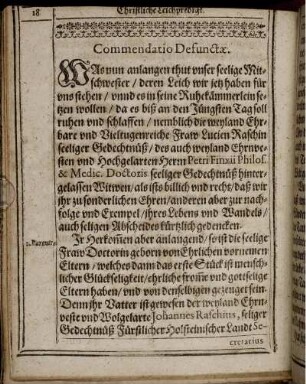 18
Christliche Leichpredigt.
Commendatio Defunctæ.
WAs nun anlangen thut vnser seelige Mit-
schwester / deren Leich wir jetz haben für
vns stehen / vnnd es in seine Ruhekämmerlein se-
tzen wollen / da es biß an den Jüngsten Tag soll
ruhen vnd schlaffen / nemblich die weyland Ehr-
bare vnd Vieltugenreiche Fraw Lucien Raschin
seeliger Gedechtnüß / des auch weyland Ehrnve-
sten vnd Hochgelarten Herrn Petri Finxii Philos.
& Medic. Doctoris seeliger Gedechtnüß hinter-
gelassen Witwen / als ists billich vnd recht / daß wir
ihr zu sonderlichen Ehren / anderen aber zur nach-
folge vnd Exempel / ihres Lebens vnd Wandels /
auch seligen Abscheides kürtzlich gedencken.
Ir Herkomen aber anlangend / so ist die seelige
Fraw Doctorin geborn von Ehrlichen vornemen
Eltern / welches dann das erste Stück ist mensch-
licher Glückseligkeit / ehrliche from̃e vnd gottselige
Eltern haben / vnd von denselbigen gezeuget sein.
Denn ihr Vatter ist gewesen der weyland Ehrn-
veste vnd Wolgelarte Johannes Raschius, seliger
Gedechtnüß Fürstlicher Holsteinischer Landt Se-
cretarius